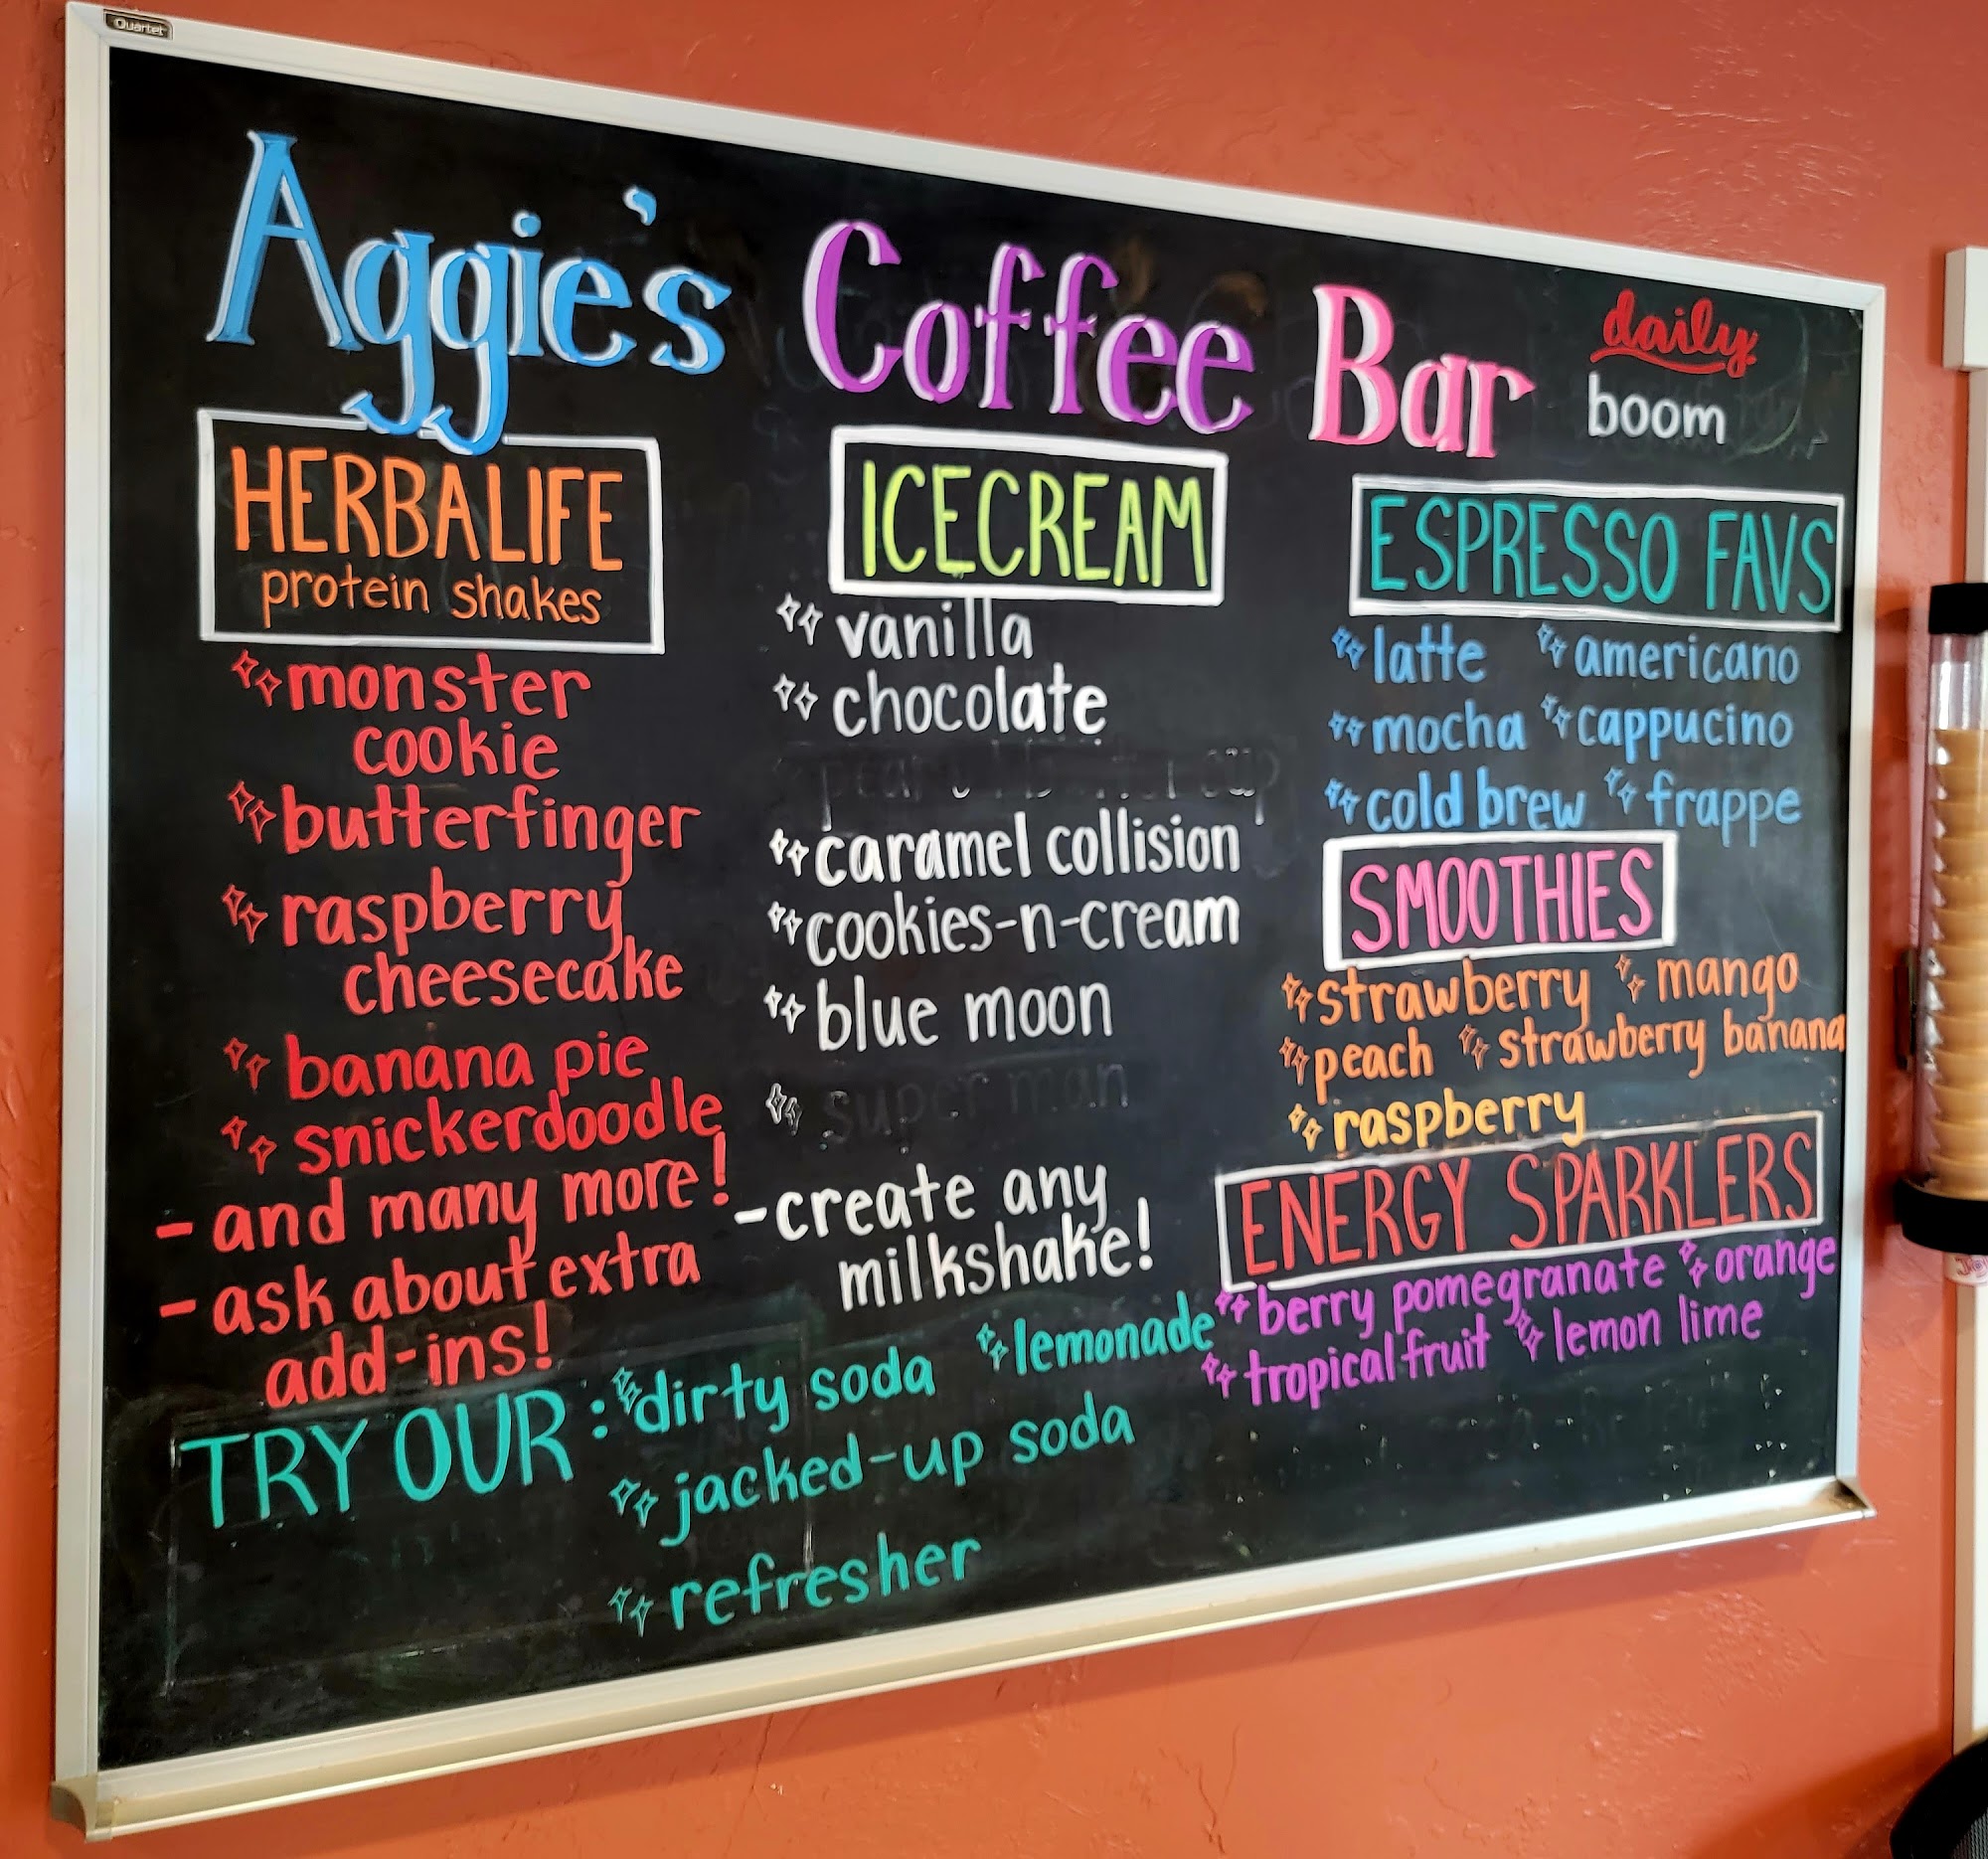 Quartet
Aggie's Coffee Bar
daily
boom
HERBALIFE
protein shakes
monster
cookie
butterfinger
raspberry
cheesecake
banana pie
snickerdoodle
- and many more!
- ask about extra
add-ins!
ICECREAM
vanilla
chocolate
caramel collision
cookies-n-cream
blue moon
super man
- create any
milkshake!
ESPRESSO FAVS
latte americano
mocha cappucino
cold brew frappe
SMOOTHIES
strawberry mango
peach strawberry banana
raspberry
ENERGY SPARKLERS
berry pomegranate orange
tropical fruit lemon lime
TRY OUR: dirty soda lemonade
jacked-up soda
refresher